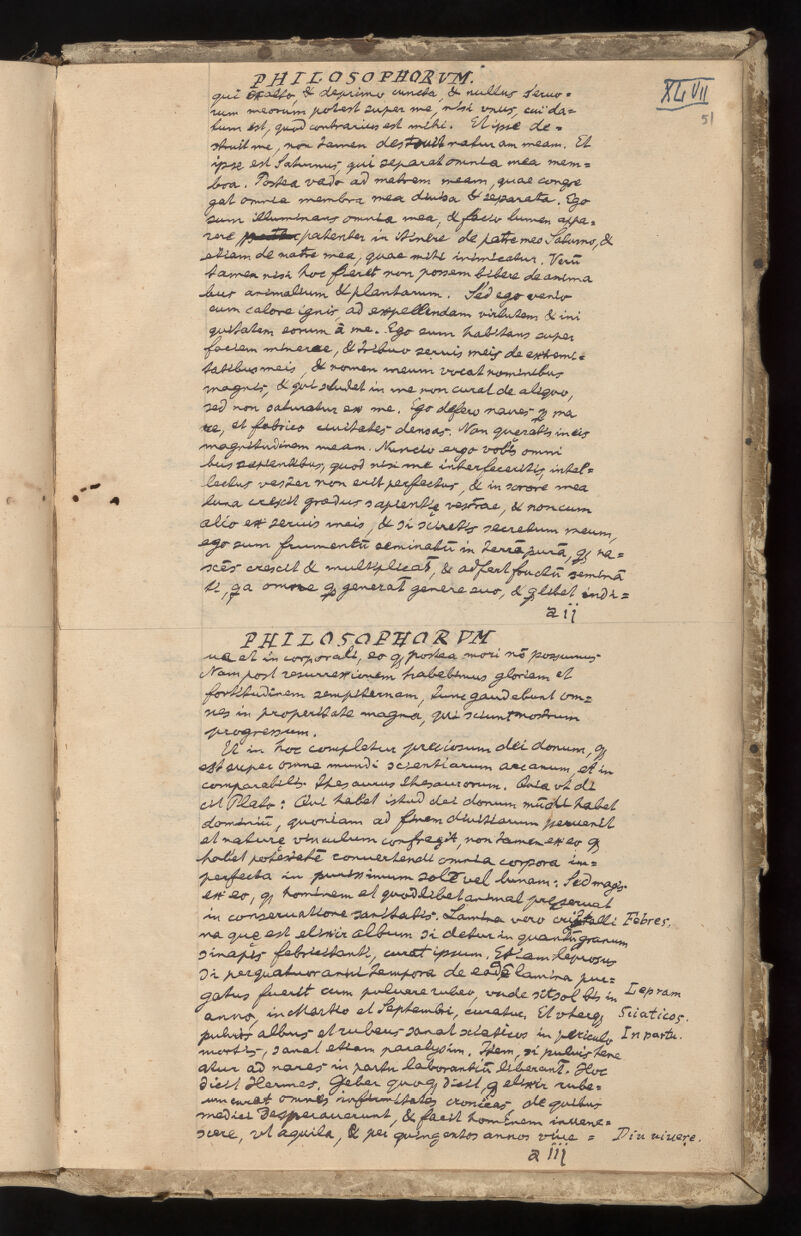 PHILOSOPHORVM.
XLVII
51
qui exalto, & deprimo cuncta, & nullus seruo=
rum meorum potest super me, nisi vnus, cui da=
tum est, quod contrarius est mihi. Et ipse de=
struit me, non tamen destruit naturam meam. Et
ipse est Saturnus, qui separat omnia mea mem=
bra. Postea vado ad matrem meam, quae congre
gat omnia membra mea diuisa & separata. Ego
sum illuminans omnia mea, & facio lumen appa=
rere patenter in itinere de patre meo Saturno, &
etiam de matre mea, quae mihi inimicatur. Verũ
tamen nisi hoc fieret non possem bibere de anima
bus animalium & plantarum. Sed ego venio
cum calore ignis, ad expellendam virtutem & ini
quitatem eorum à me. Ego sum habitans super
faciem minerae, & tribuo seruis meis de extremi=
tatibus meis, & nomen meum vocat nominibus
magnis, & qui studet in me non curat de aliquo,
sed non saturatur ex me. Ego defero naues ꝑ ma
re, et fabrico ciuitates densas. Non queratis in eis
magnitudinem meam. Nuncio ergo vobis omni
bus sapientibus, quod nisi me interfeceritis, intel=
lectus vester non erit perfectus, & in sorore mea
luna crescit gradus sapientię vestrae, & non cum
alio ex seruis meis, & si sciretis secretum meum,
ego sum frumentũ seminatũ in terrã purã, ꝙ na=
scẽs crescit & multiplicat, & adfert fructũ seminã
ti, ꝗa omne ꝙ generat̃ genere suo, & ꝗlibet indi=
a ii
PHILOSOPHORVM
ua et in corporali, eo ꝙ postea mori nõ possumus
Nam post resurrexionem habebimus gloriam et
fortitudinem sempiternam, tunc gaudebunt om=
nes in properitate magna, qui sciunt nostrum
progressum.
Et in hoc completur preciosum dei donum, ꝙ
est super omne mundi scientiarum arcanum, et in
comparabilis thesaurus thesaurorum. Quia vt di
cit Plato: Qui habet istud dei donum mũdi habet
dominiũ, quoniam ad finem diuitiarum peruenit
et naturę vinculum confregit, non tamen ex eo ꝙ
habet potestatẽ conuertendi omnia corpora im=
perfecta in purissimum solẽ vel lunam: Sed magis
ex eo, ꝙ hominem et quodlibet animal preseruat
in conseruatione sanitatis. Lamina vero cristalli
Febres.
na que est elixir album si detur in quantũ granum
sinapis febricitanti, curat ipsum. Etiam leprosus
si per quatuor anni tempora de eadẽ lamina pur=
gatus fuerit cum puluere rubeo, vnde sit sol bis in
Lepram
anno, in Martio et Septembri, curatur. Et vterqꝫ
Sciaticos.
puluis albus et rubeus sanat sciaticos in periculo
In partu.
mortis, sanat etiam paralysim. Item, si puluis tene
atur ad nares in partu laborantiũ liberant̃. Hoc
dicit Hermes. Geber quoqꝫ dicit, ꝙ elixir rube=
um curat omnes infirmitates cronicas, de quibus
medici desperauerunt, & facit hominem iuuene=
scere, vt aquila, & per quingentos annos viue=
Diu viuere.
a iii